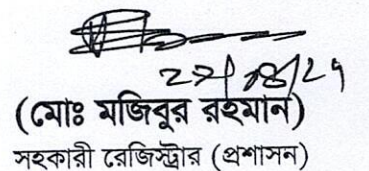 (মোঃ মজিবুর রহমান)
সহকারী রেজিস্ট্রার (প্রশাসন)